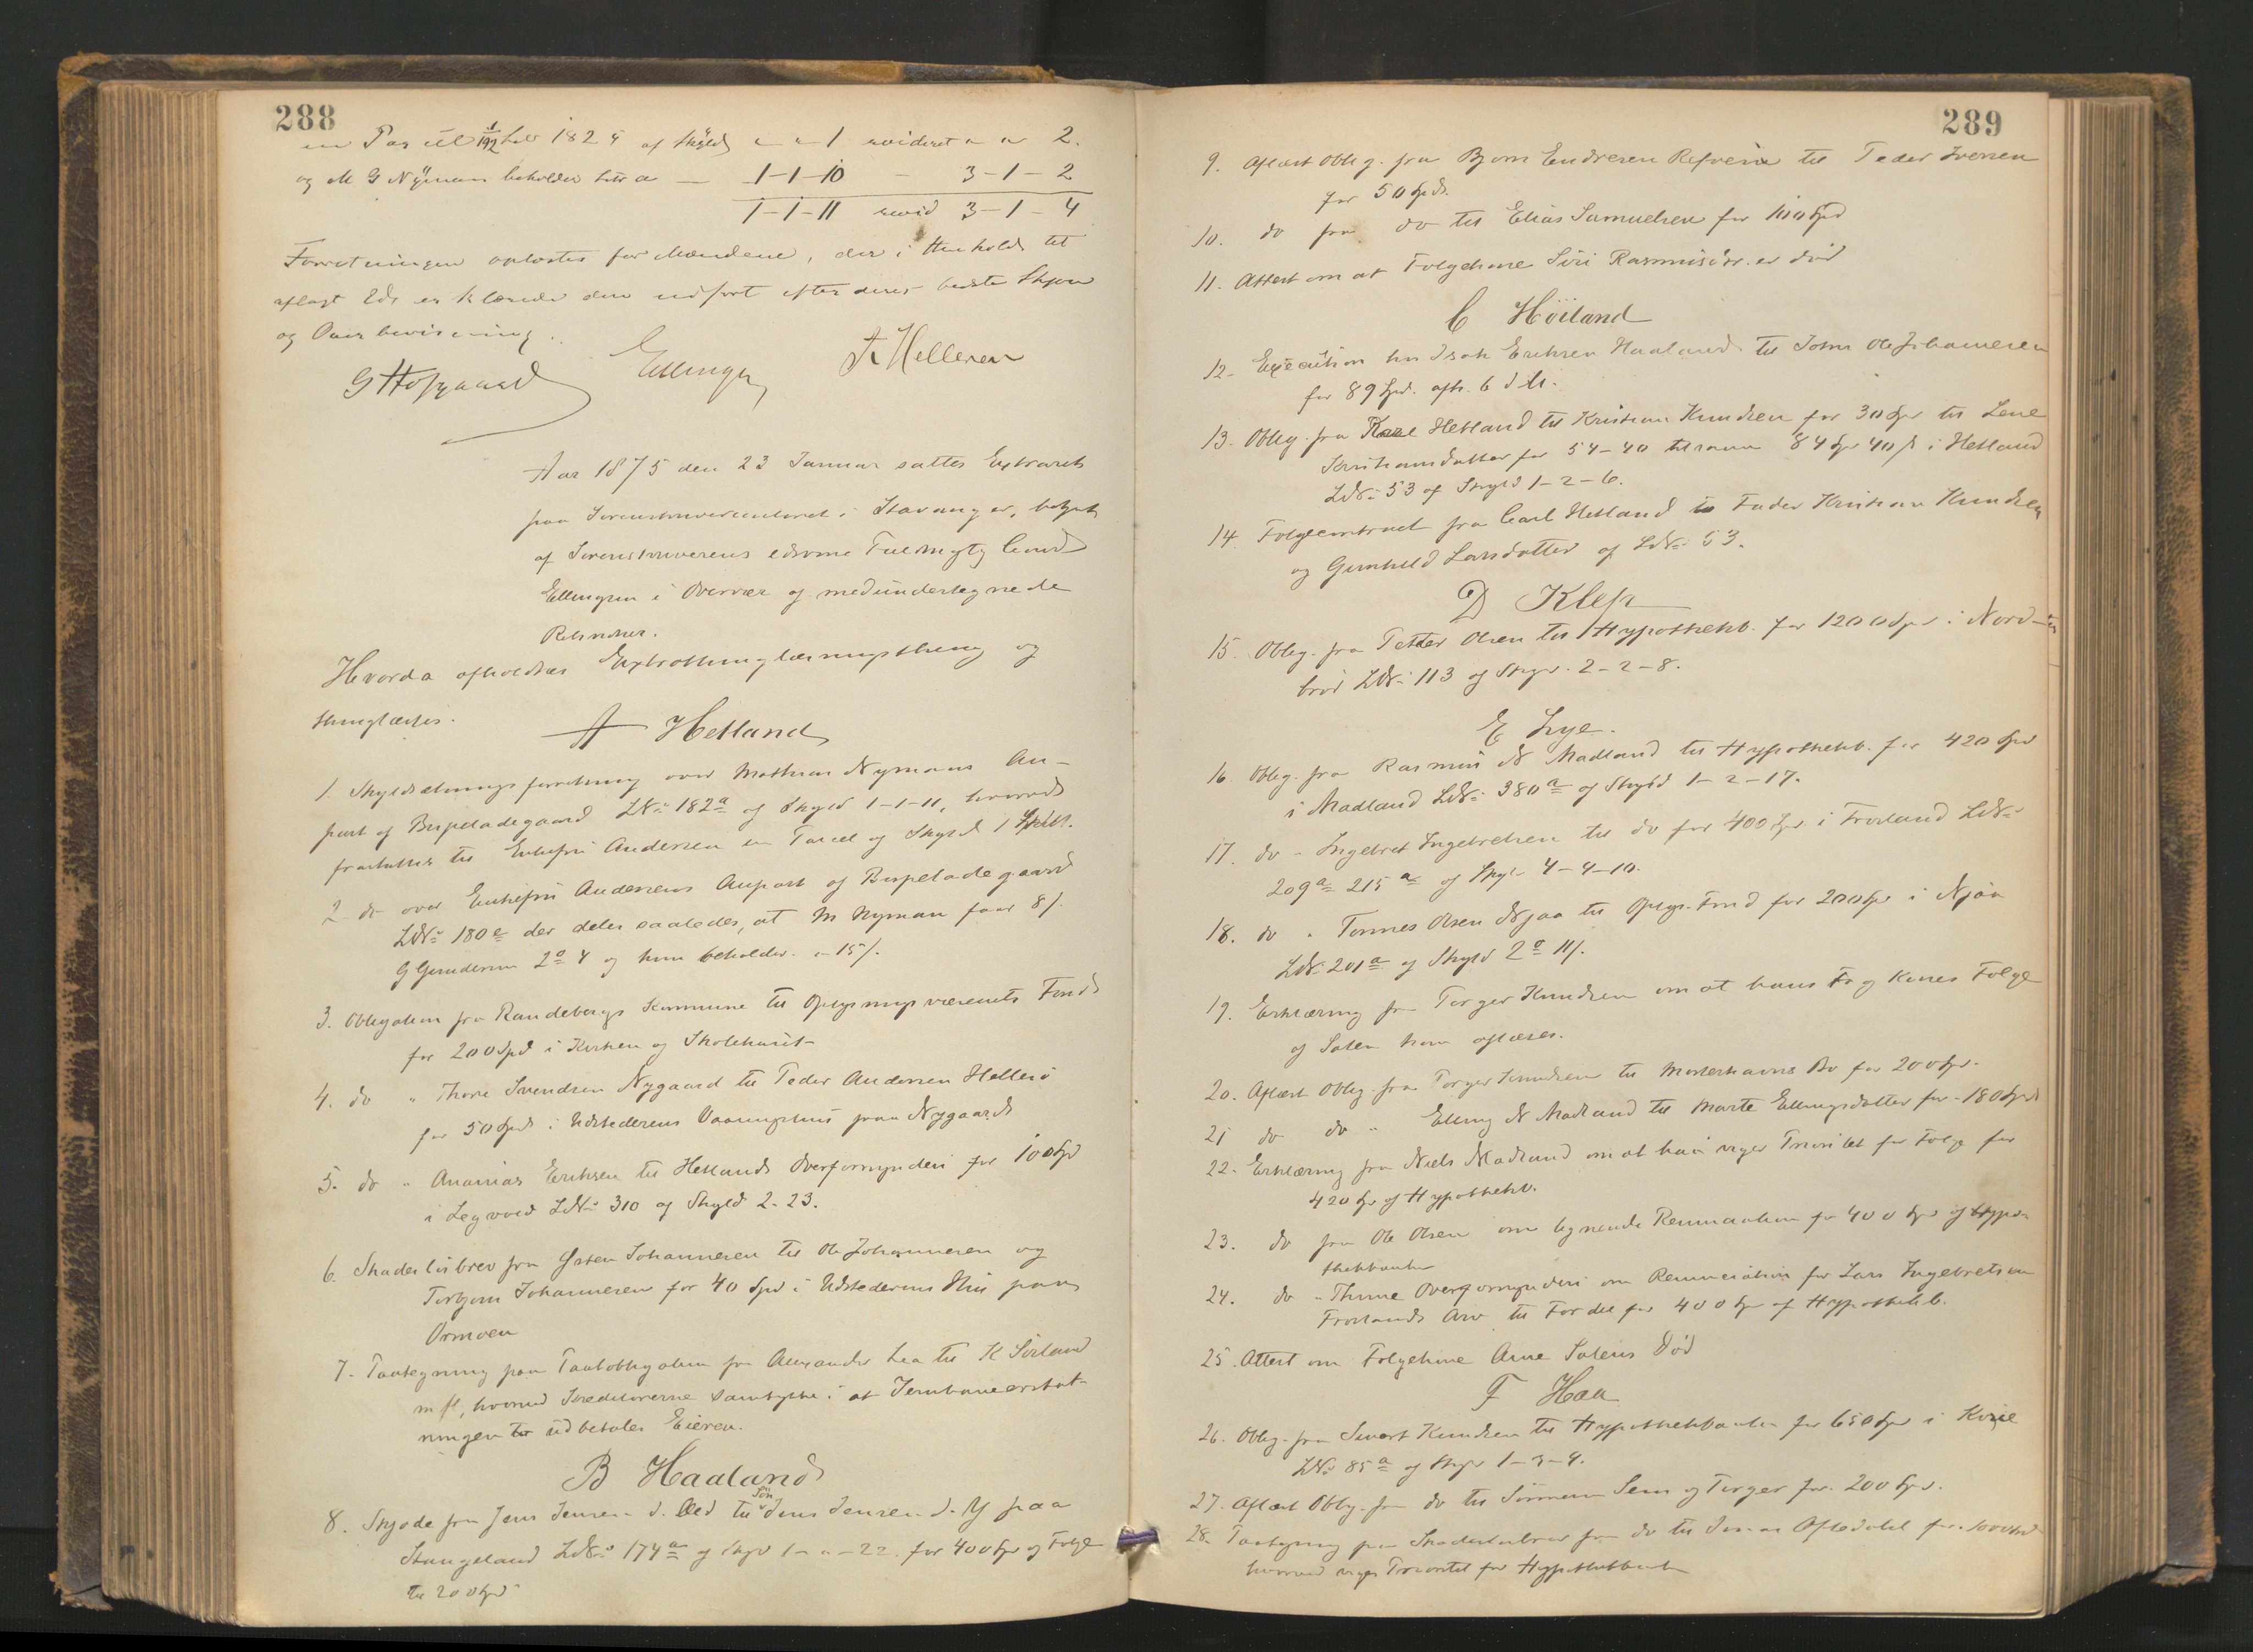 288
en Parcel 192 Lod 182 af Skyld " " 1 revideret " " 2.
og M G Nyman beholder Litr a — 1-1-10 - 3-1-2
1-1-11 revid 3-1-4
Forretningen oplæstes for Mændene, der i Henhold til
aflagt Ed erklærede den udført efter deres bedste Skjøn
og Overbevisning.
G Hofgaard Ellingsen A Helleren
Aar 1875 den 23 Januar sattes Extraret
paa Sorenskriverembedet i Stavanger, betjent
af Sorenskriverens edsvorne Fuldmægtig
Ellingsen i Overvær af medundertegnede
Retsvidner.
Hvorda afholdtes Extrathinglæsningsthing og
thinglæstes.
A Hetland
1 Skyldsætningsforretning over Mathias Nymans An-
part af Bispeladegaard LNo 182a af Skyld 1-1-11, hvorved
fraskilles til Enkefru Andersen en Parcel af Skyld 1 Skill.
2. do over Enkefru Andersens Anpart af Bispeladegaard
LNo 180 a der deles saaledes, at M Nyman faar 8/.
G Gundersen 2 o 4 og hun beholder - " 15/.
3. Obligation fra Randebergs Kommune til Oplysningsvæsenets Fond
for 200 Spd i Kirken og Skolehuset
4. do " Thore Svendsen Nygaard til Peder Andersen Hellesø
for 50 Spd i Udstederens Vaaningshus paa Nygaard
5. do " Ananias Eriksen til Hetlands Overformynderi for 100 Spd
i Legvold LNo 310 af Skyld 2-23.
6. Skadesløsbrev fra Østen Johannesen til Ole Johannesen og
Torbjørn Johannesen for 40 Spd i Udstederens Hus paa
Ormøen
7. Paategning paa Panteobligation fra Alexander Lea til K Sørland
m fl, hvorved Kreditorerne samtykke i at Jernbaneerstat-
ningen udbetales Eieren.
B Haaland
8. Skjøde fra Jens Jensen d. Æld til Søn Jens Jensen d. Y paa
Stangeland LNo 174 a af Skyld 1-"-22 for 400 Spd og Følge
til 200 Spd
289
9. Aflæst Oblig. fra Bjørn Endresen Refveim til Peder Iversen
for 50 Spd.
10. do fra do til Elias Samuelsen for 100 Spd
11. Attest om at Folgekone Siri Rasmusdtr. er død
C Höiland
12. Execution hos Isak Eriksen Haaland til John Ole Johannesen
for 89 Spd. afh. 6 d M.
13. Oblig. fra Karl Hetland til Kristian Knudsen for 30 Spd til Lene
Kristiansdatter for 54-40 tilsamm 84 Spd 40 s i Hetland
LNo 53 af Skyld 1-2-6.
14. Folgecontract fra Carl Hetland til Fader Kristian Knudsen
og Gunhild Larsdatter af LNo 53.
D Klep
15. Oblig. fra Petter Olsen til Hypothekb. for 1200 Spd i Nord-
brød LNo 113 af Skyld. 2-2-8.
E Lye.
16. Oblig. fra Rasmus N Madland til Hypothekb. for 420 Spd
i Madland LNo 380 a af Skyld 1-2-17.
17. do - Ingebret Ingebretsen til do for 400 Spd i Frøiland LNo
209 a 215 a af Skyld 4-4-10.
18. do " Tønnes Olsen Njaa til Oplys. Fond for 200 Spd i Njaa
LNo 201 a af Skyld 2 o 11/.
19. Erklæring fra Torger Knudsen om at hans og Kones Folge
af Salen kan aflæses.
20. Aflæst Oblig. fra Torger Knudsen til Bo for 200 Spd.
21 do do " Elling N Madland til Marte Ellingsdatter for 180 Spd
22. Erklæring fra Niels Madland om at han viger Prioritet for Folge for
420 Spd af Hypothekb.
23. do fra Ole Olsen om lignende Renunciation for 400 Spd af Hypo-
thekbanken
24. do " Thime Overformynderi om Renunciation for Lars Ingebretsen
Frøilands Arv til Fordel for 400 Spd af Hypothekb.
25. Attest om Folgekone Ane Salens Død
F Haa
26. Oblig. fra Sivert Knudsen til Hypothekbanken for 650 Spd i Kvie
LNo 85 a af Skyld 1-3-4.
27. Aflæst Oblig. fra do til Sønnerne Sem og Torger for 200 Spd.
28. Paategning paa Skadesløsbrev fra do til Jonas Aftedahl for 1000 Spd
hvorved viges Prioritet for Hypothekbank